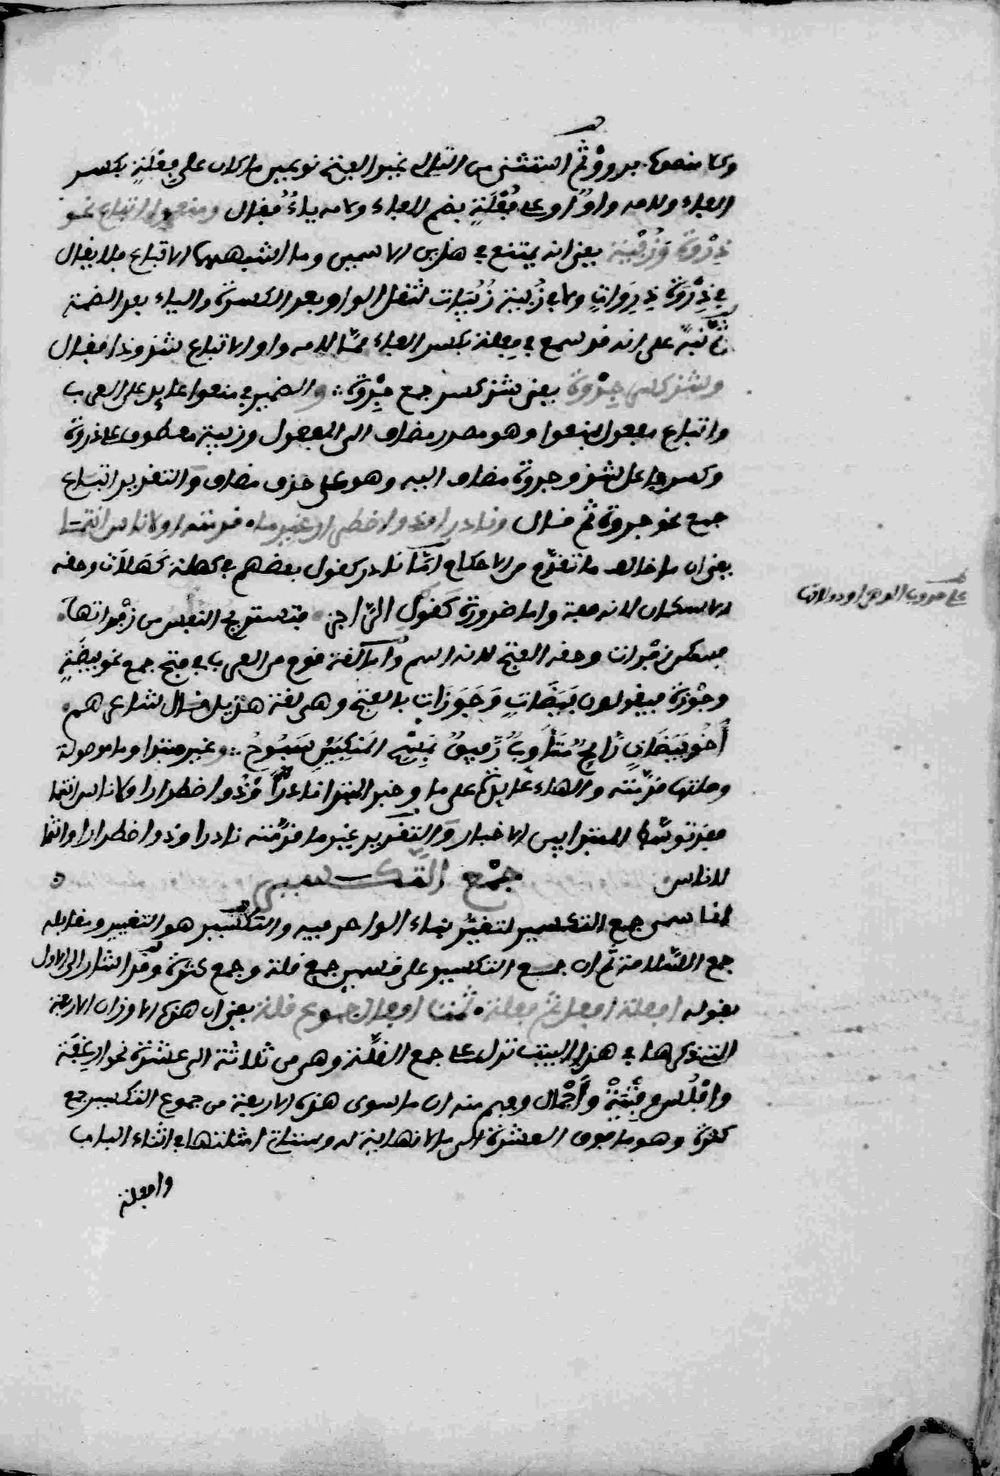 ثم استثنى من التالي غير الفتح نوعين ما كان على فِعْلَةٍ بكسر
الفاء ولامه واو او على فُعْلَةٍ بضم الفاء ولامه ياءٌ فقال ومنعوا اتباع نحو
ذِرْوَة وَزُبْيَة يعني انه يمتنع في هذين الاسمين وما اشبههما الاتباع فلا يقال
في ذِرْوَة ذِرِوَاتٍ ولا في زُبية زُبُيَات لثقل الواو بعد الكسرة والياء بعد الضمة
ثم نبه على انه قد سمع في فعلة بكسر الفاء مما لامه واو الاتباع شذوذا فقال
وشذ كسر جِرْوَة يعني شذ كسر جمع جِرْوَة والضمير في منعوا عايد على العرب
واتباع مفعول بمنعوا وهو مصدر مضاف الى المفعول وزبية معطوف على ذروة
وكسر فاعل بشذ وجروة مضاف اليه وهو على حذف مضاف والتقدير اتباع
جمع نحو جروة ثم قال ونادر او ذو اضطرار غير ما قدمته او لاناس انتمى
يعني ان ما خالف ما تقدم من الاحكام اما نادر كقول بعضهم في كهلة كَهَلَات وحقه
الاسكان لانه صفة واما ضرورة كقول الراجز فتستريح النفس من زفْراتها
فسكن زفرات وحقه الفتح لانه اسم واما لغة قوم من العرب في فتح جمع نحو بيضَةٍ
وجوْزة فيقولون بَيَضَاتٍ وَجَوَزَات بالفتح وهي لغة هذيل قال شاعرهم
أخُو بَيَضَاتٍ رَائِحٌ مُتَأَوِّبٌ رَفِيقٌ بِمَسْحِ المَنْكِبَيْنِ سَبُوحُ وغير مبتدا وما موصولة
وصلتها قدمته والهاء عايدة على ما وخبر المبتدا نادر او ذو اضطرار او لاناس انتمى
والتقدير غير ما قدمته نادر او ذو اضطرار او انتمى
لاناس
جمْع التكسير
انما سمي جمع التكسير لتغير بناء الواحد فيه والتكسير هو التغيير ويقابله
جمع السلامة ثم ان جمع التكسير على قسمين جمع قلة وجمع كثرة وقد اشار الى الاول
بقوله افعلة افعل ثم فعلة ثمت افعال جموع قلة يعني ان هذه الاوزان الاربعة
التي ذكرها في هذا البيت تدل على جمع القلة وهي من ثلاثة الى عشرة نحو ارغفة
وافْلُس وفِتْيَة وأحْمال وفهم منه ان ما سوى هذه الاربعة من جموع التكسير جمع
كثرة وهو ما فوق العشرة الى ما لا نهاية له وستاتي امثلتها في اثناء الباب
وافعلة